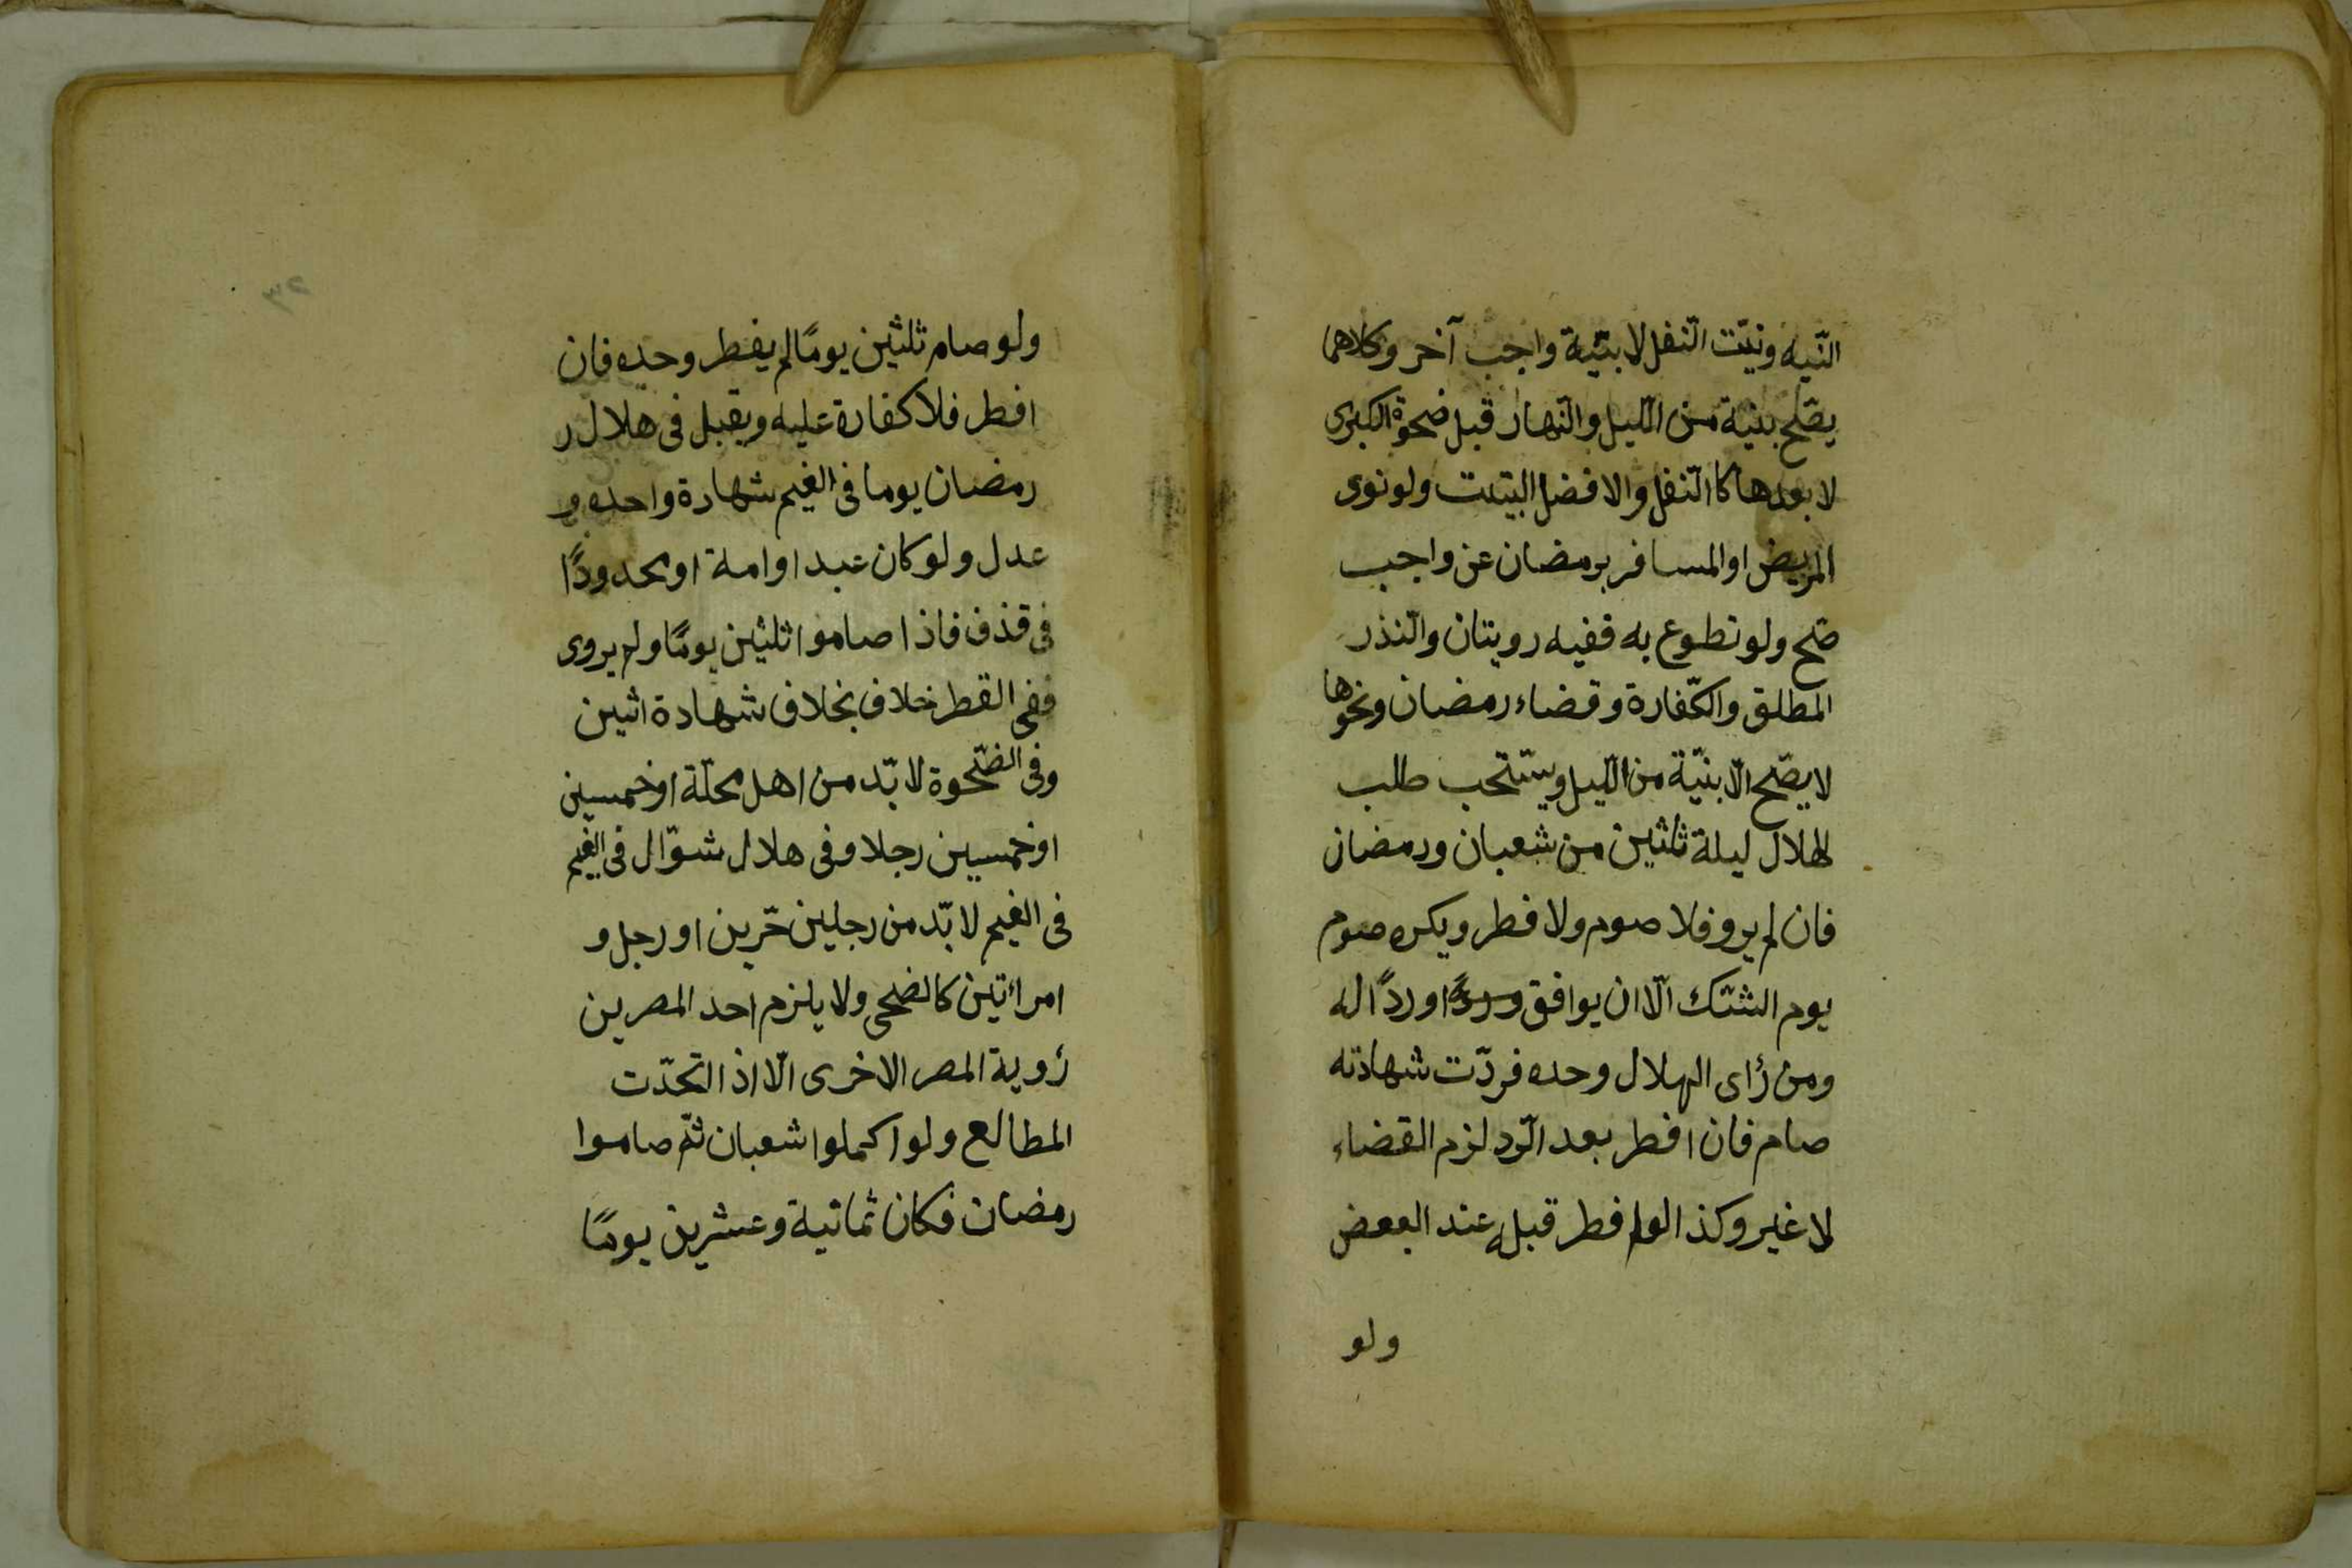 النّيه ونيّت النّفل لا بنيّة واجب آخر وكلاهما
يصّح بنية من الّليل والنّهار قبل ضحوة الكبرى
لا بعدها كا النّفل والافضل البتيت ولو نوى
المريض او المسافر برمضان عن واجب
صّح ولو تطوع به ففيه رويتان والنّذر
المطلق والكّفارة وقضاء رمضان ونحوها
لا يصّح الّا بنيّة من الّليل ويستّحب طلب
الهلال ليلة ثلثين من شعبان ورمضان
فان لم يرو فلا صوم ولا فطر ويكره صوم
يوم الشّك الّا ان يوافق وردًا او ردًا له
ومن رٔاى الهلال وحده فردّت شهادته
صام فان افطر بعد الّرد لزم القضاء
لا غير وكذا لو افطر قبله عند البعض
ولو
٢٣
ولو صام ثلثين يومًا لم يفطر وحده فان
افطر فلا كفارة عليه ويقبل فى هلال ر
رمضان يوما فى الغيم شهادة واحده و
عدل ولو كان عبد او امة او محدودًا
فى قذف فاذا صاموا ثلثين يومًا ولم يروى
ففى القطر خلاف بخلاف شهادة اثنين
وفى الضّحوة لا بّد من اهل محلّة او خمسين
او خمسين رجلا وفى هلال شوّال فى الغيم
فى الغيم لا بّد من رجلين حّرين او رجل و
امرأتين كالضحى ولا يلزم احد المصرين
رٔوية المصر الاخرى الّا اذ اتحدّت
المطالع ولو اكملوا شعبان ثمّ صاموا
رمضان فكان ثمانية وعشرين يومًا